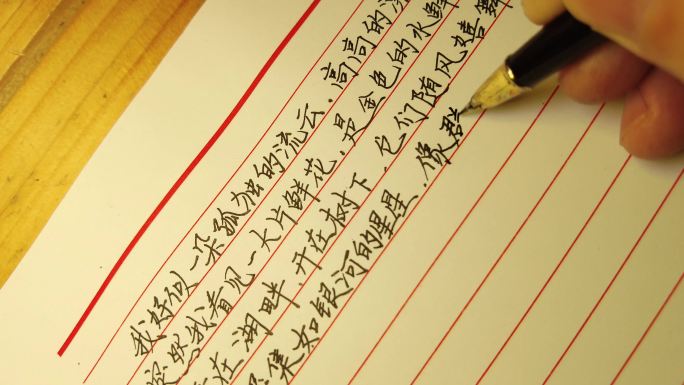 我好似一朵孤独的流云，高高的
突然我看见一大片鲜花，是金色的水鲜
在湖畔，开在树下，它们随风嬉舞
集如银河的星星，像群